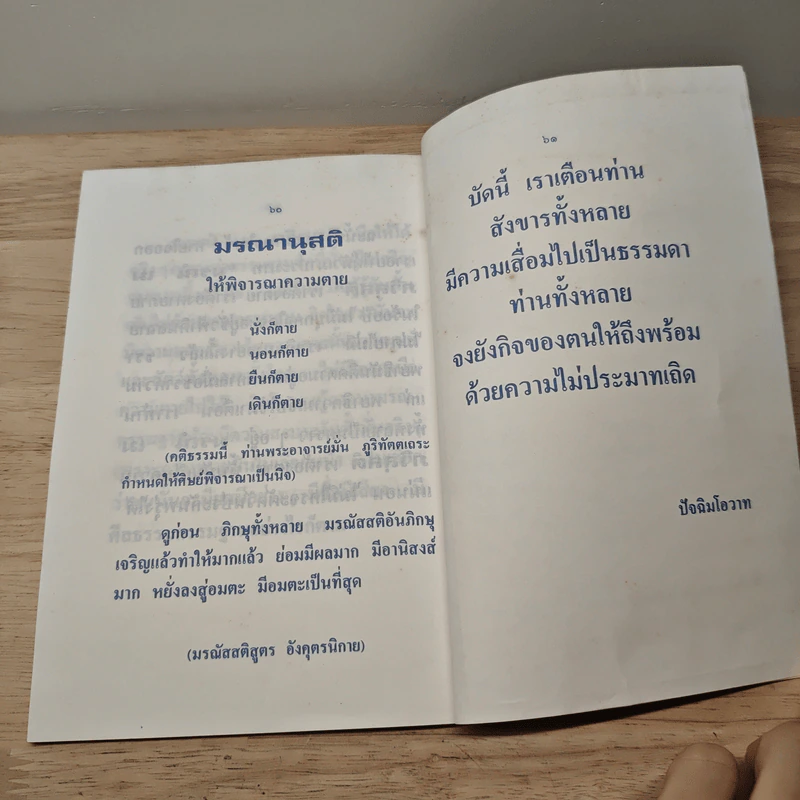 ๖๐
มรณานุสติ
ให้พิจารณาความตาย
นั่งก็ตาย
นอนก็ตาย
ยืนก็ตาย
เดินก็ตาย
(คติธรรมนี้ ท่านพระอาจารย์มั่น ภูริทัตตเถระ
กำหนดให้ศิษย์พิจารณาเป็นนิจ)
ดูก่อน ภิกษุทั้งหลาย มรณัสสติอันภิกษุ
เจริญแล้วทำให้มากแล้ว ย่อมมีผลมาก มีอานิสงส์
มาก หยั่งลงสู่อมตะ มีอมตะเป็นที่สุด
(มรณัสสติสูตร อังคุตรนิกาย)
๖๑
บัดนี้ เราเตือนท่าน
สังขารทั้งหลาย
มีความเสื่อมไปเป็นธรรมดา
ท่านทั้งหลาย
จงยังกิจของตนให้ถึงพร้อม
ด้วยความไม่ประมาทเถิด
ปัจฉิมโอวาท